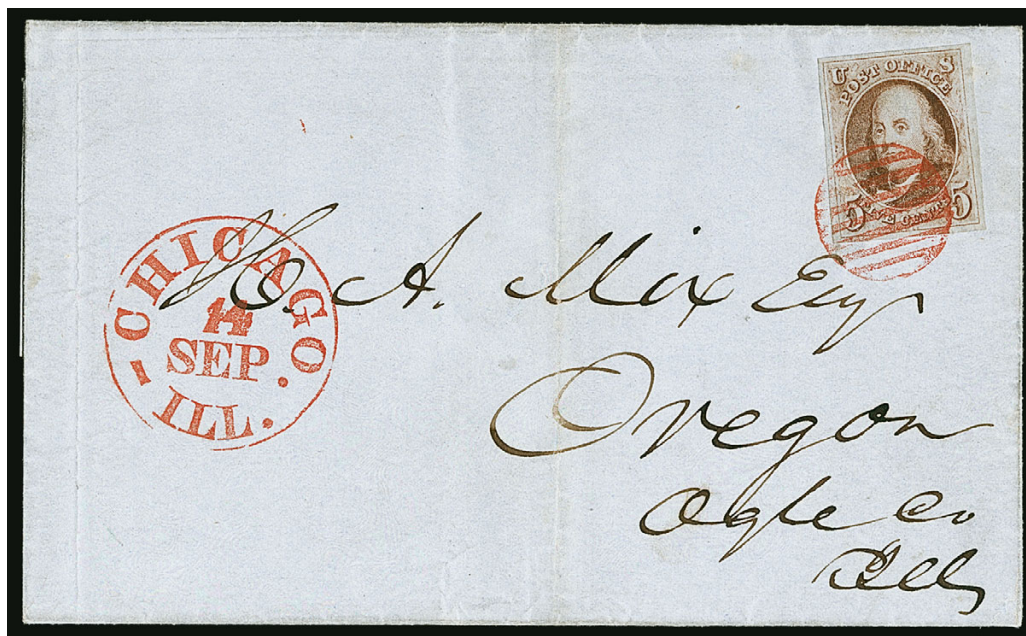 U S
POST OFFICE
5 FIVE CENTS 5
CHICAGO
14
SEP.
ILL.
H. A. Mix Esq
Oregon
Ogle Co
Ills